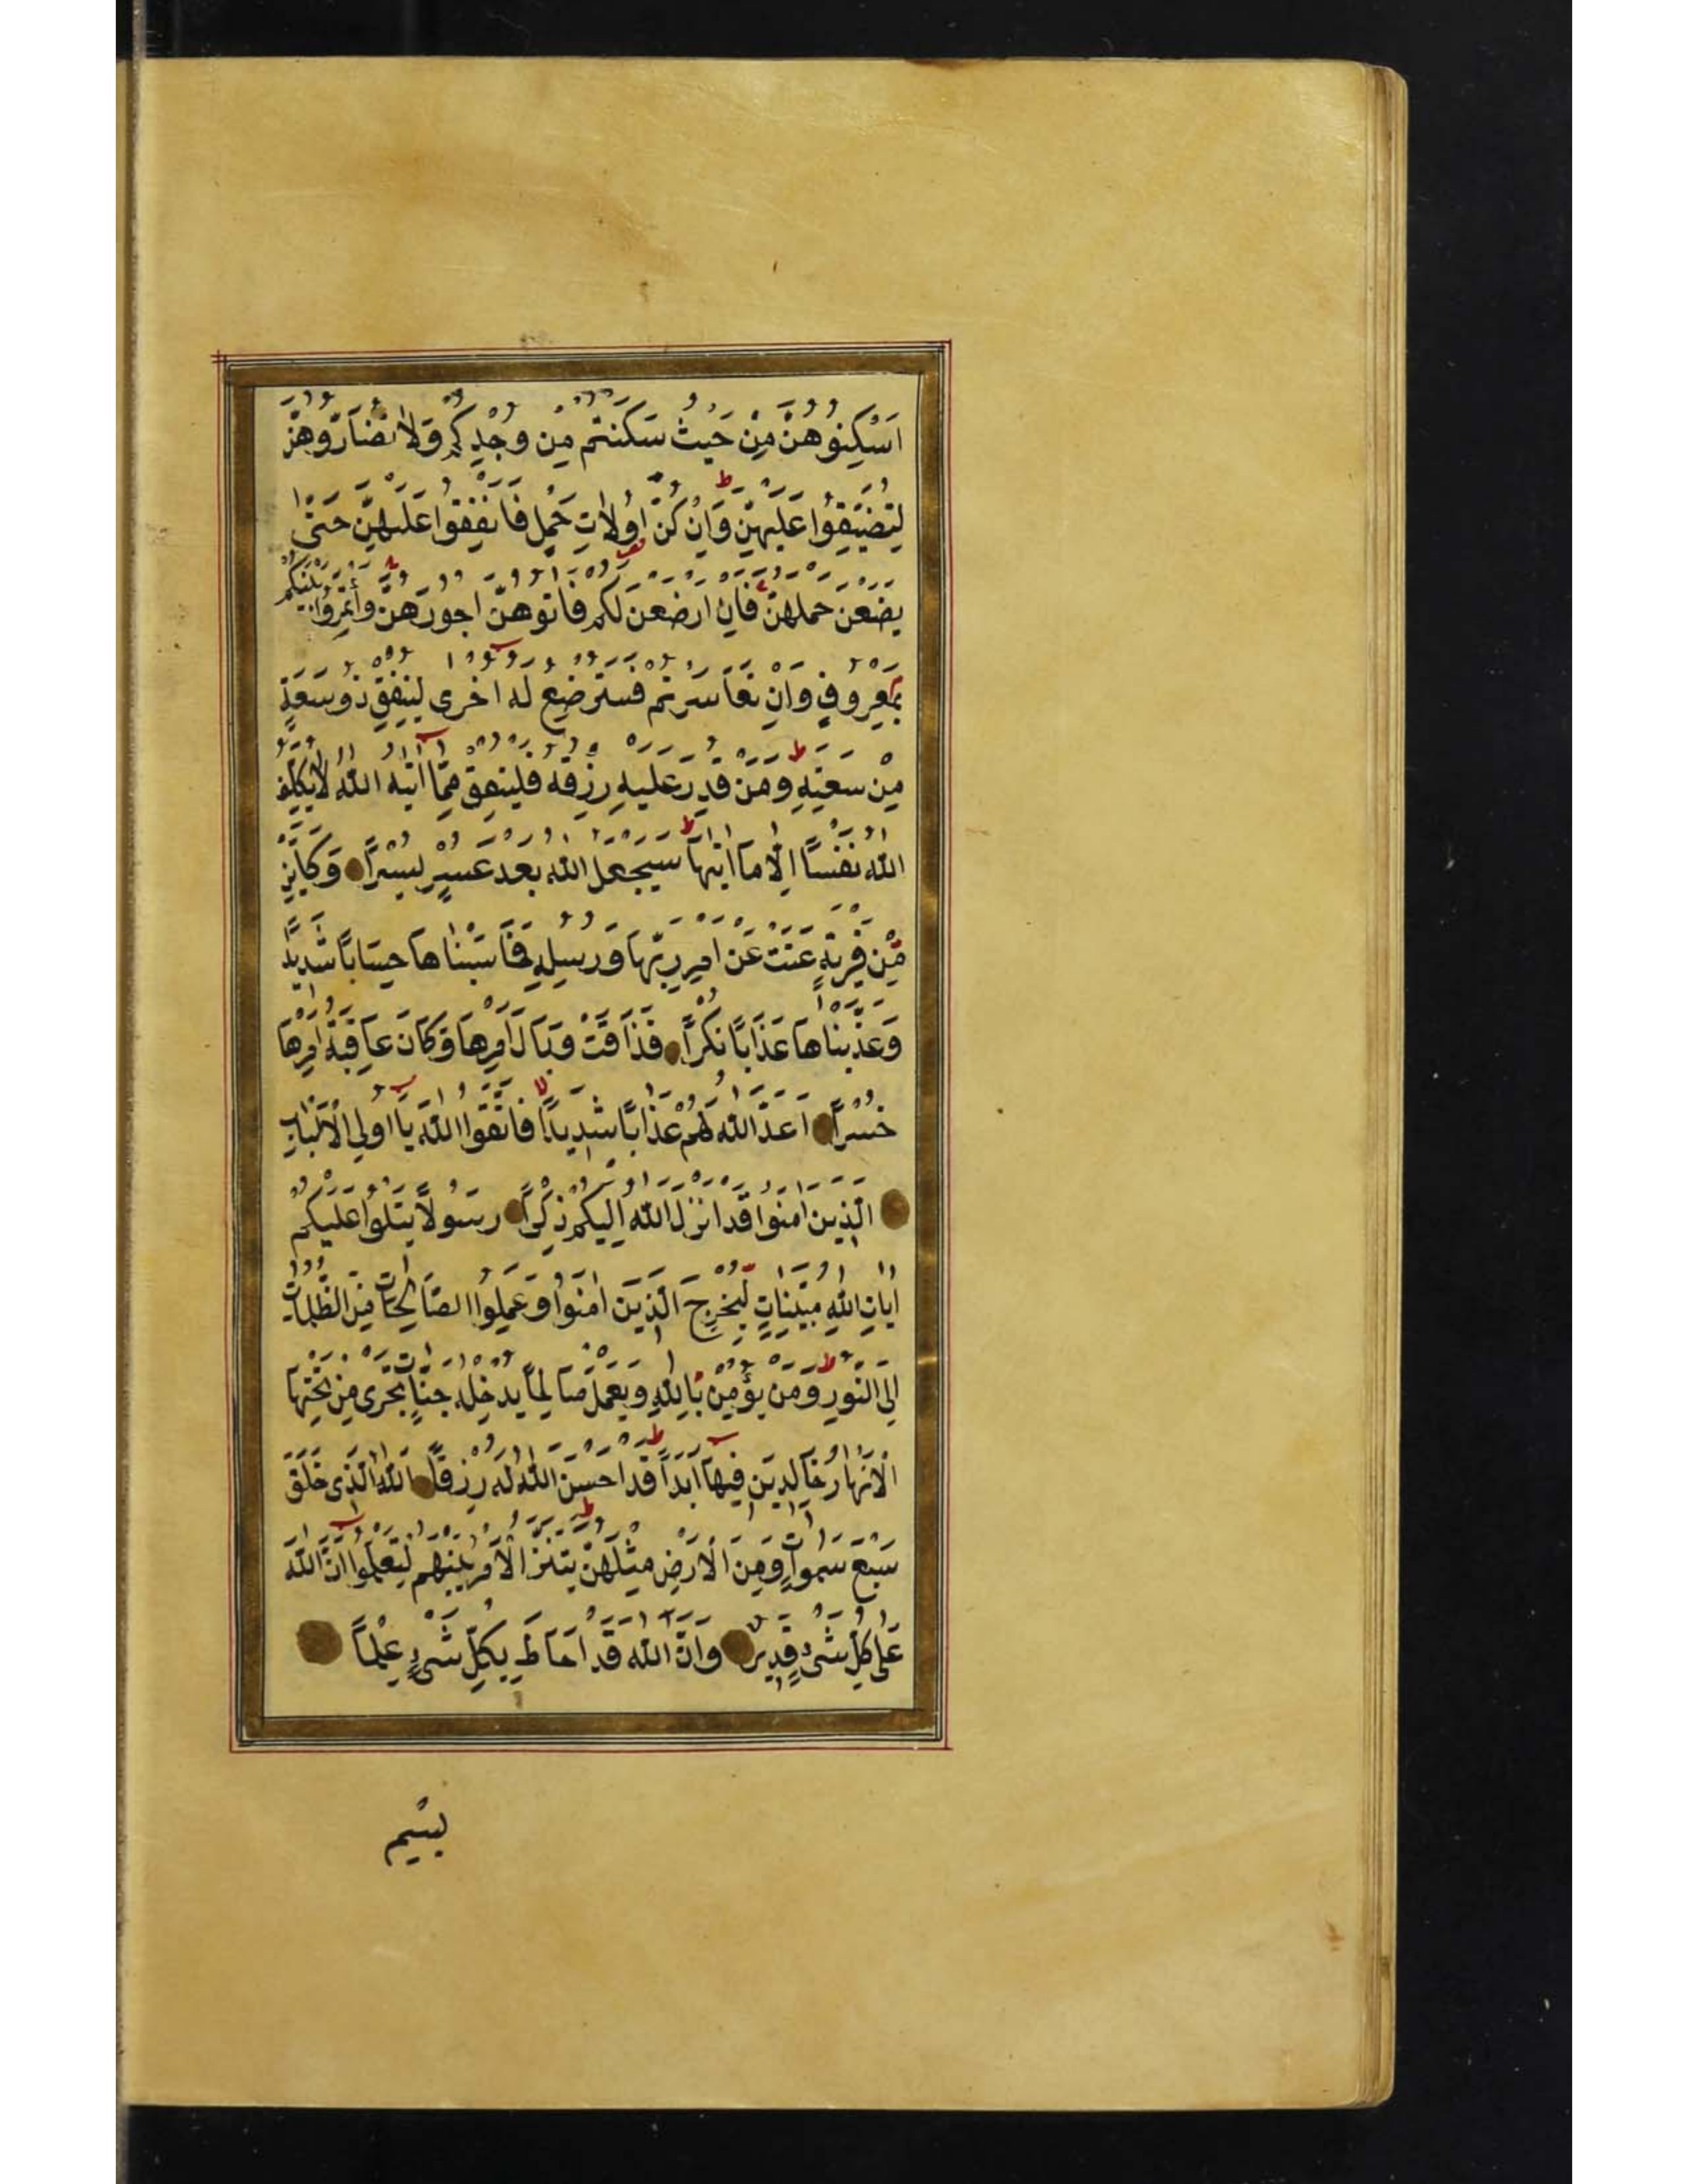 اَسْكِنُوهُنَّ مِنْ حَيْثُ سَكَنْتُمْ مِنْ وُجْدِكُمْ وَلَا تُضَارُّوهُنَّ
لِتُضَيِّقُوا عَلَيْهِنَّ وَاِنْ كُنَّ اُولَاتِ حَمْلٍ فَاَنْفِقُوا عَلَيْهِنَّ حَتّٰى
يَضَعْنَ حَمْلَهُنَّ فَاِنْ اَرْضَعْنَ لَكُمْ فَاٰتُوهُنَّ اُجُورَهُنَّ وَأْتَمِرُوا بَيْنَكُمْ
بِمَعْرُوفٍ وَاِنْ تَعَاسَرْتُمْ فَسَتُرْضِعُ لَهُ اُخْرٰى لِيُنْفِقْ ذُو سَعَةٍ
مِنْ سَعَتِهِ وَمَنْ قُدِرَ عَلَيْهِ رِزْقُهُ فَلْيُنْفِقْ مِمَّا اٰتٰيهُ اللّٰهُ لَا يُكَلِّفُ
اللّٰهُ نَفْسًا اِلَّا مَا اٰتٰيهَا سَيَجْعَلُ اللّٰهُ بَعْدَ عُسْرٍ يُسْرًا وَكَاَيِّنْ
مِّنْ قَرْيَةٍ عَتَتْ عَنْ اَمْرِ رَبِّهَا وَرُسُلِهِ فَحَاسَبْنَاهَا حِسَابًا شَدِيدًا
وَعَذَّبْنَاهَا عَذَابًا نُكْرًا فَذَاقَتْ وَبَالَ اَمْرِهَا وَكَانَ عَاقِبَةُ اَمْرِهَا
خُسْرًا اَعَدَّ اللّٰهُ لَهُمْ عَذَابًا شَدِيدًا فَاتَّقُوا اللّٰهَ يَا اُولِي الْاَلْبَابِ
الَّذِينَ اٰمَنُوا قَدْ اَنْزَلَ اللّٰهُ اِلَيْكُمْ ذِكْرًا رَسُولًا يَتْلُوا عَلَيْكُمْ
اٰيَاتِ اللّٰهِ مُبَيِّنَاتٍ لِيُخْرِجَ الَّذِينَ اٰمَنُوا وَعَمِلُوا الصَّالِحَاتِ مِنَ الظُّلُمَاتِ
اِلَى النُّورِ وَمَنْ يُؤْمِنْ بِاللّٰهِ وَيَعْمَلْ صَالِحًا يُدْخِلْهُ جَنَّاتٍ تَجْرِى مِنْ تَحْتِهَا
الْاَنْهَارُ خَالِدِينَ فِيهَا اَبَدًا قَدْ اَحْسَنَ اللّٰهُ لَهُ رِزْقًا اَللّٰهُ الَّذِى خَلَقَ
سَبْعَ سَمٰوَاتٍ وَمِنَ الْاَرْضِ مِثْلَهُنَّ يَتَنَزَّلُ الْاَمْرُ بَيْنَهُنَّ لِتَعْلَمُوا اَنَّ اللّٰهَ
عَلٰى كُلِّ شَىْءٍ قَدِيرٌ وَاَنَّ اللّٰهَ قَدْ اَحَاطَ بِكُلِّ شَىْءٍ عِلْمًا
بِسْمِ